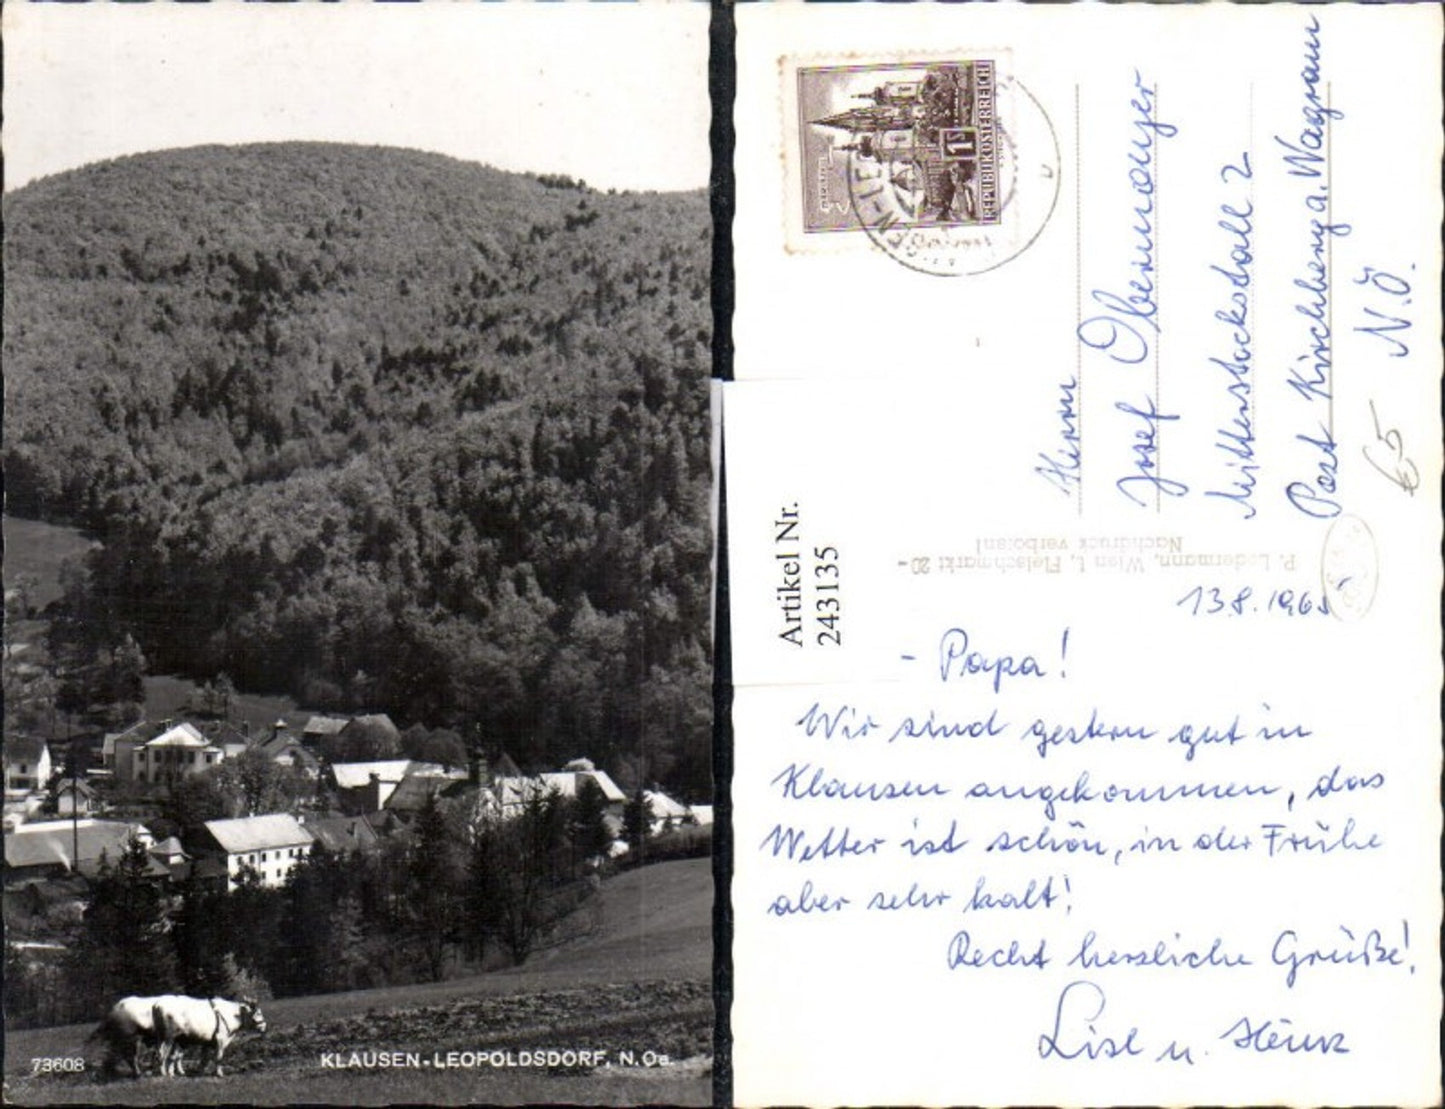 73608
KLAUSEN-LEOPOLDSDORF, N. Oe.
REPUBLIK ÖSTERREICH
1S
Herrn
Josef Obermayer
Mitterstockstall 2
Post Kirchberg a. Wagram
N.Ö.
€5
P. Ledermann, Wien I., Fleischmarkt 20 -
Nachdruck verboten!
Artikel Nr.
243135
13.8.196
- Papa!
Wir sind gestern gut in
Klausen angekommen, das
Wetter ist schön, in der Frühe
aber sehr kalt!
Recht herzliche Grüße!
Lisl u. Heinz